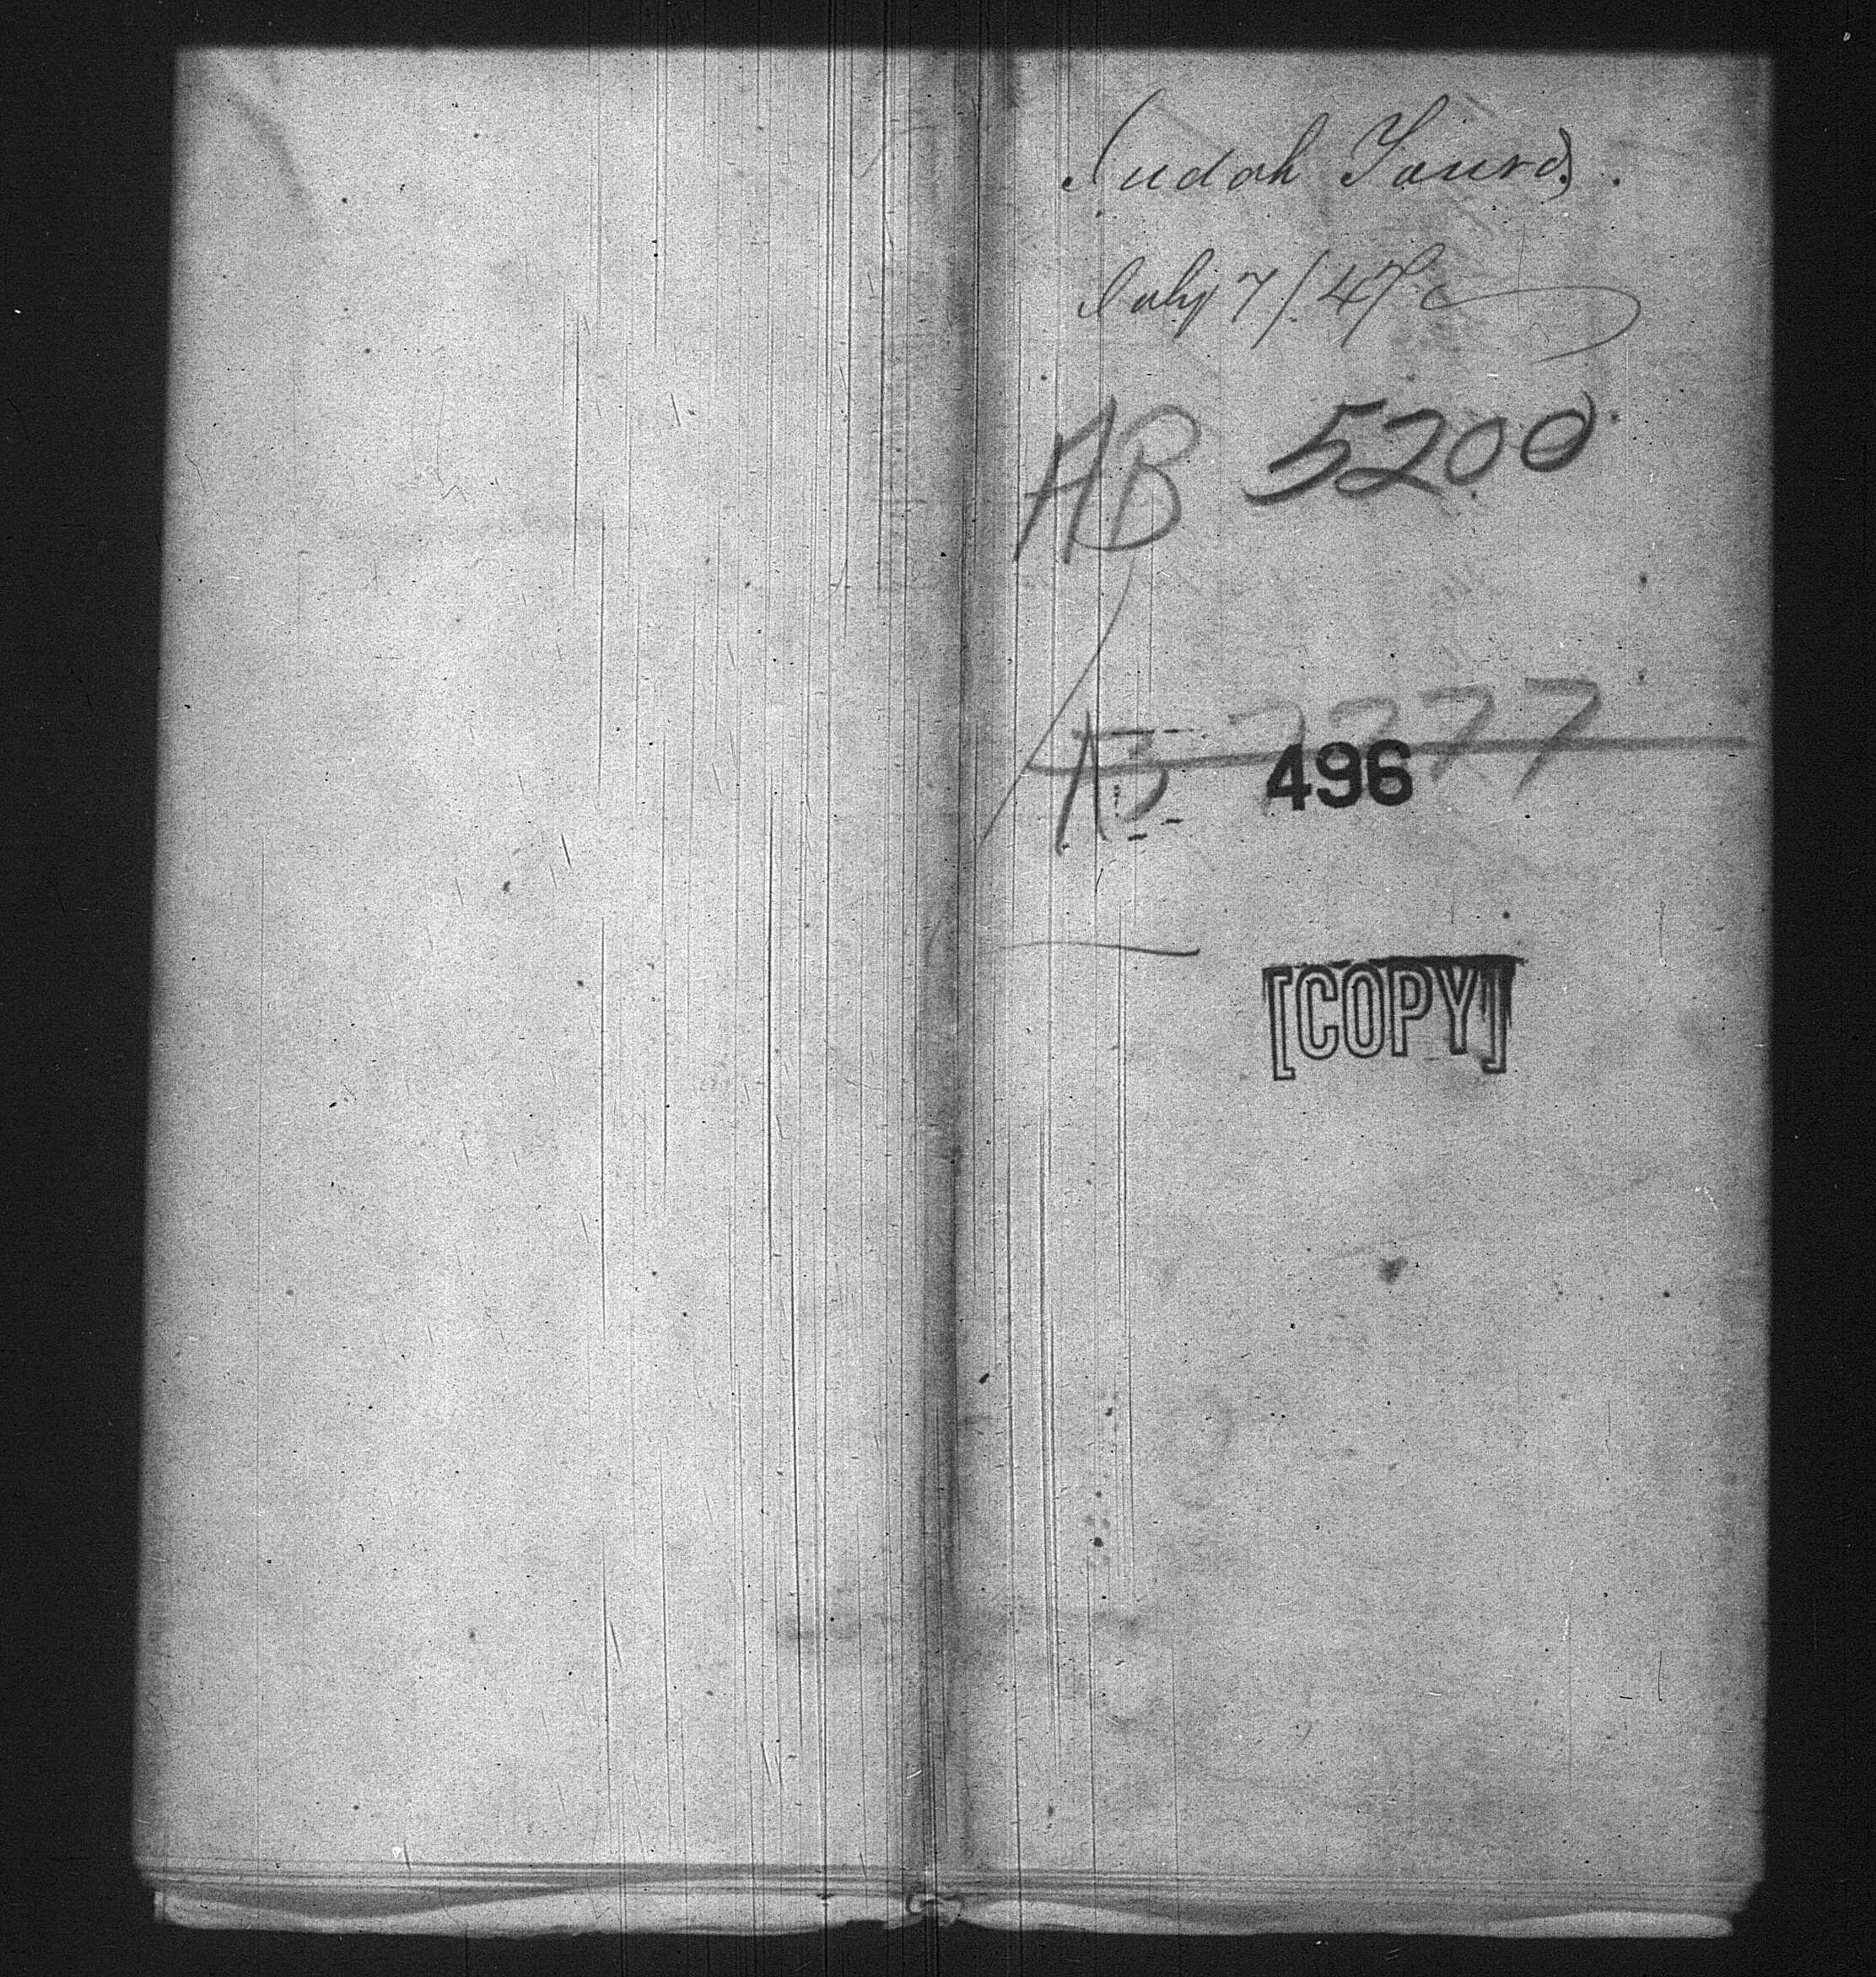 Judah Touro.
July 7/47
AB 5200
AB 7377
496
[COPY]